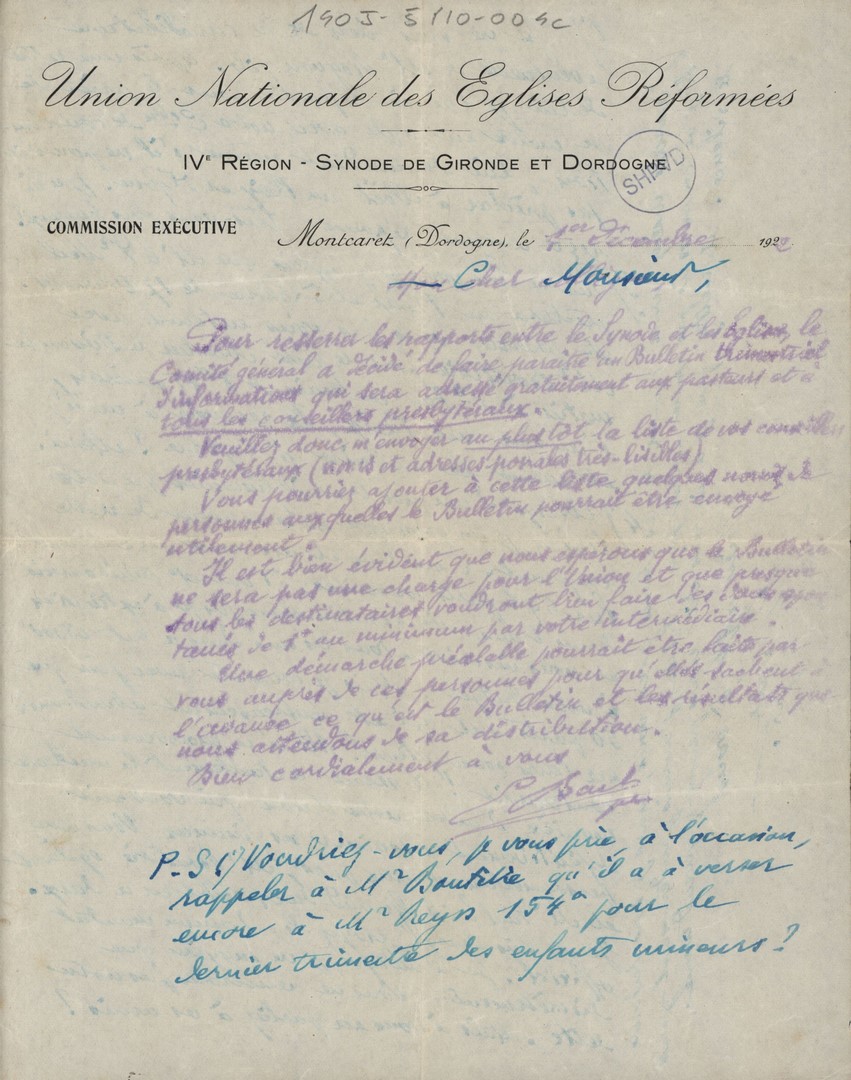 1405-5/10-004c
Union Nationale des Eglises Réformées
IVE RÉGION - SYNODE DE GIRONDE ET DORDOGNE
SHPVD
COMMISSION EXÉCUTIVE
Montcaret (Dordogne), le 1er décembre 1922
Cher Monsieur,
Pour resserrer les rapports entre le Synode et les Eglises, le
Comité général a décidé de faire paraître un Bulletin trimestriel
d'informations qui sera adressé gratuitement aux pasteurs et à
tous les conseillers presbytéraux.
Veuillez donc m'envoyer au plus tôt la liste de vos conseillers
presbytéraux (noms et adresses postales très-lisibles)
Vous pourriez ajouter à cette liste quelques noms de
personnes auxquelles le Bulletin pourrait être envoyé
utilement.
Il est bien évident que nous espérons que le Bulletin
ne sera pas une charge pour l'Union et que presque
tous les destinataires voudront bien faire des dons spon
tanés de 1fr au minimum par votre intermédiaire.
Une démarche préalable pourrait être faite par
vous auprès de ces personnes pour qu'elles sachent à
l'avance ce qu'est le Bulletin et les résultats que
nous attendons de sa distribution.
Bien cordialement à vous
P-S (1) Voudriez-vous, je vous prie, à l'occasion,
rappeler à Mr qu'il a à verser
encore à Mr 154 pour le
dernier trimestre des enfants mineurs?